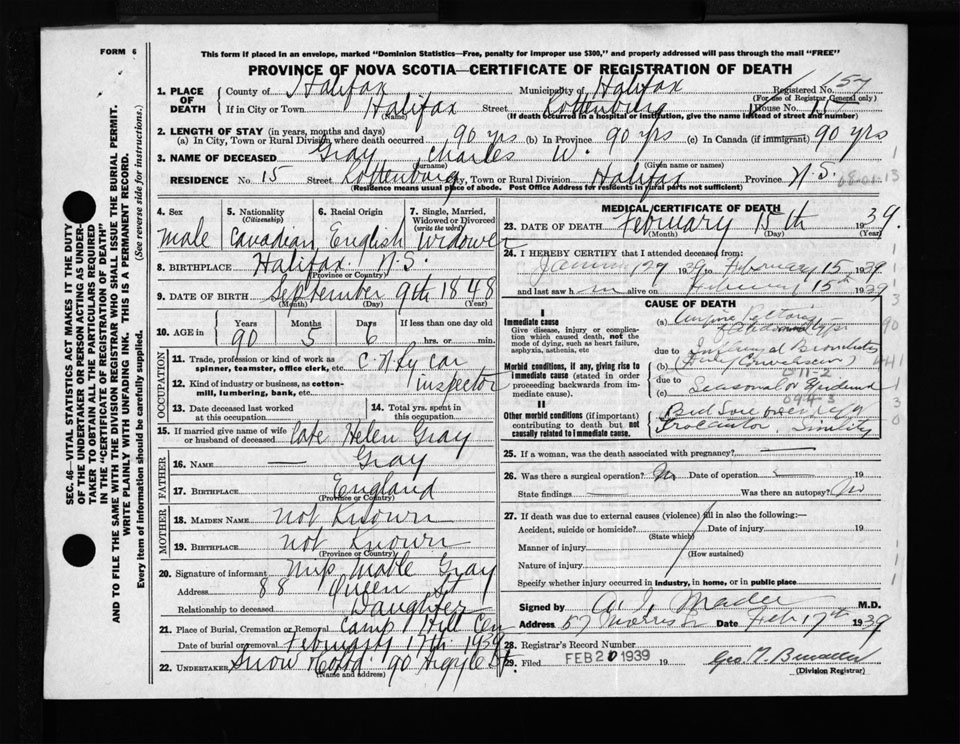 FORM 6
This form if placed in an envelope, marked "Dominion Statistics—Free, penalty for improper use $300," and properly addressed will pass through the mail "FREE"
PROVINCE OF NOVA SCOTIA—CERTIFICATE OF REGISTRATION OF DEATH
1. PLACE OF DEATH
County of Halifax Municipality of Halifax Registered No. 157
(For use of Registrar General only)
If in City or Town Halifax Street Kottenburg House No.
(Name) (If death occurred in a hospital or institution, give the name instead of street and number)
2. LENGTH OF STAY (in years, months and days)
(a) In City, Town or Rural Division where death occurred 90 yrs (b) In Province 90 yrs (c) In Canada (if immigrant) 90 yrs
3. NAME OF DECEASED Gray Charles W.
(Surname) (Given name or names)
RESIDENCE No. 15 Street Kottenburg City, Town or Rural Division Halifax Province N.S.
(Residence means usual place of abode. Post Office Address for residents in rural parts not sufficient)
4. Sex Male
5. Nationality (Citizenship) Canadian
6. Racial Origin English
7. Single, Married, Widowed or Divorced (write the word) Widower
8. BIRTHPLACE Halifax N.S.
(Province or Country)
9. DATE OF BIRTH September 9th 1848
(Month) (Day) (Year)
10. AGE in Years Months Days If less than one day old
90 5 6 hrs. or min.
OCCUPATION
11. Trade, profession or kind of work as spinner, teamster, office clerk, etc. C.N.Ry car
12. Kind of industry or business, as cotton-mill, lumbering, bank, etc. Inspector
13. Date deceased last worked at this occupation
14. Total yrs. spent in this occupation
15. If married give name of wife or husband of deceased late Helen Gray
FATHER
16. NAME — Gray
17. BIRTHPLACE England
(Province or Country)
MOTHER
18. MAIDEN NAME not Known
19. BIRTHPLACE not Known
(Province or Country)
20. Signature of informant Mrs Mable Gray
Address 88 Queen St
Relationship to deceased Daughter
21. Place of Burial, Cremation or Removal Camp Hill Cem
Date of burial or removal February 17th 1939
22. UNDERTAKER Snow & Co Ltd. 90 Argyle St.
(Name and address)
MEDICAL CERTIFICATE OF DEATH
23. DATE OF DEATH February 15th 1939.
(Month) (Day) (Year)
24. I HEREBY CERTIFY that I attended deceased from:
1939 to February 15 1939
and last saw h m alive on February 15th 1939
CAUSE OF DEATH
I
Immediate cause
Give disease, injury or complication which caused death, not the mode of dying, such as heart failure, asphyxia, asthenia, etc
(a) Angina Pectoris
due to
Morbid conditions, if any, giving rise to immediate cause (stated in order proceeding backwards from immediate cause).
(b)
due to
(c) Seasonal or Epidemic
II
Other morbid conditions (if important) contributing to death but not causally related to immediate cause.
Bed Sore
Senility
25. If a woman, was the death associated with pregnancy? —
26. Was there a surgical operation? No Date of operation 19
State findings — Was there an autopsy? No
27. If death was due to external causes (violence) fill in also the following:—
Accident, suicide or homicide? Date of injury 19
(State which)
Manner of injury
(How sustained)
Nature of injury
Specify whether injury occurred in industry, in home, or in public place
Signed by M.D.
Address 57 Morris St Date Feb 17th 1939
28. Registrar's Record Number
29. Filed FEB 20 1939 19
(Division Registrar)
SEC. 46—VITAL STATISTICS ACT MAKES IT THE DUTY OF THE UNDERTAKER OR PERSON ACTING AS UNDERTAKER TO OBTAIN ALL THE PARTICULARS REQUIRED IN THE "CERTIFICATE OF REGISTRATION OF DEATH" AND TO FILE THE SAME WITH THE DIVISION REGISTRAR WHO SHALL ISSUE THE BURIAL PERMIT.
WRITE PLAINLY WITH UNFADING INK. THIS IS A PERMANENT RECORD.
Every item of information should be carefully supplied. (See reverse side for instructions.)